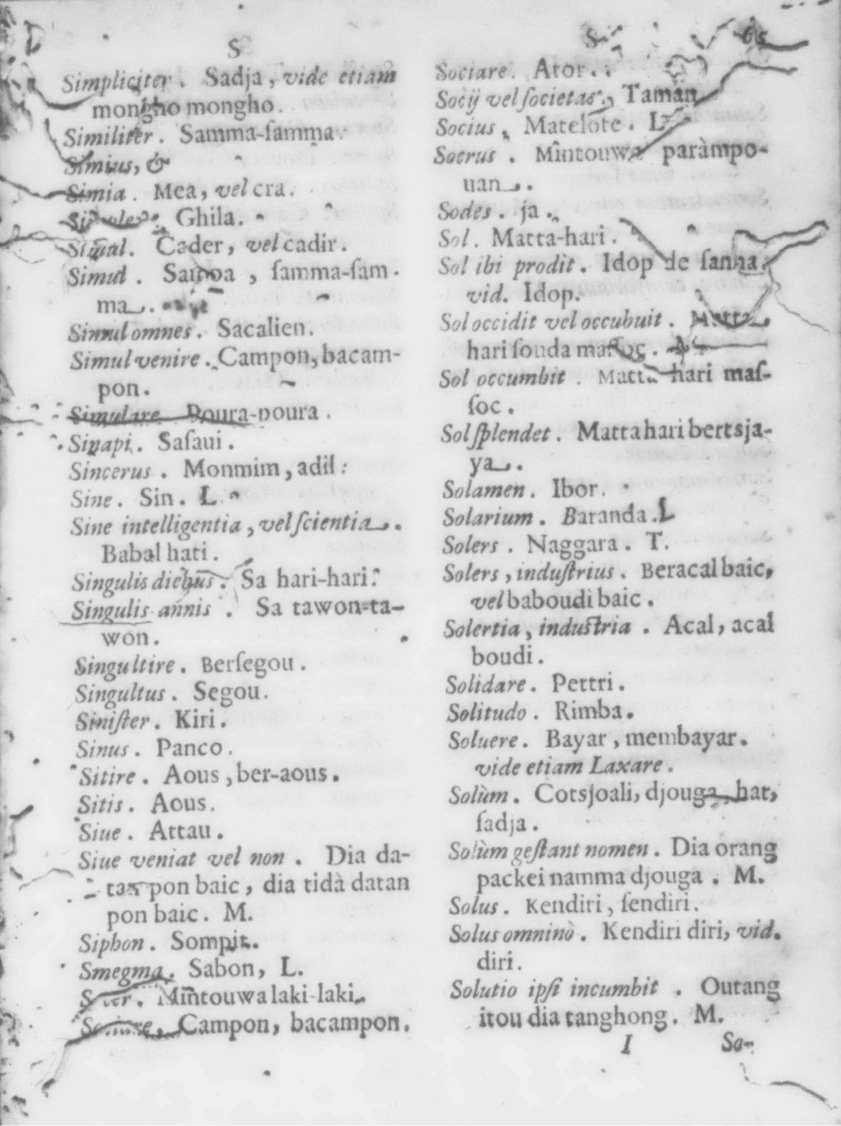 S
Simpliciter. Sadja, vide etiam
mongho mongho.
Similiter. Samma-ſamma.
Simius, &
Simia. Mea, vel cra.
Ghila.
Signal. Cader, vel cadir.
Simul. Samoa, ſamma-ſam-
ma.
Simul omnes. Sacalien.
Simul venire. Campon, bacam-
pon.
Simulare. Poura-poura.
Sinapi. Saſaui.
Sincerus. Monmim, adil:
Sine. Sin. L
Sine intelligentia, vel ſcientia.
Babal hati.
Singulis diebus. Sa hari-hari.
Singulis annis. Sa tawon-ta-
won.
Singultire. Berſegou.
Singultus. Segou.
Siniſter. Kiri.
Sinus. Panco.
Sitire. Aous, ber-aous.
Sitis. Aous.
Siue. Attau.
Siue veniat vel non. Dia da-
tan pon baic, dia tidà datan
pon baic. M.
Siphon. Sompit.
Smegma. Sabon, L.
Mintouwa laki-laki.
Campon, bacampon.
S 65
Sociare. Ator.
Socij vel ſocietas. Taman
Socius, Matelote. L
Socrus. Mintouwa paràmpo-
uan.
Sodes. ja.
Sol. Matta-hari.
Sol ibi prodit. Idop de ſanna.
vid. Idop.
Sol occidit vel occubuit. Matta
hari ſonda maſſoc.
Sol occumbit. Matta hari maſ-
ſoc.
Sol ſplendet. Matta hari bertsja-
ya.
Solamen. Ibor.
Solarium. Baranda. L
Solers. Naggara. T.
Solers, induſtrius. Beracal baic,
vel baboudi baic.
Solertia, induſtria. Acal, acal
boudi.
Solidare. Pettri.
Solitudo. Rimba.
Soluere. Bayar, membayar.
vide etiam Laxare.
Solùm. Cotsjoali, djouga, hat,
ſadja.
Solùm geſtant nomen. Dia orang
packei namma djouga. M.
Solus. Kendiri, ſendiri.
Solus omninò. Kendiri diri, vid.
diri.
Solutio ipſi incumbit. Outang
itou dia tanghong. M.
I So-